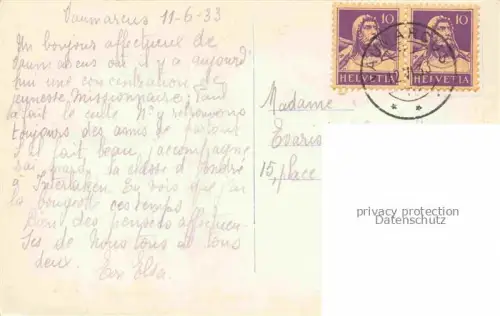 Vaumarcus 11-6-33
Un bonjour affectueux de
Vaumarcus où il y a aujourd'
hui une concentration de
jeunesse Missionnaire; Paul
a fait le culte. N'y retrouvons
toujours des amis de partout
Il a fait beau, accompagné
à Interlaken. Tu vois que j'ai
la bougeotte ces temps
Bien des pensées affectueu-
ses de nous tous à tous
deux.
Elsa.
10
10
HELVETIA
HELVETIA
VAUMARCUS
Madame
Evaris
15, place
privacy protection
Datenschutz